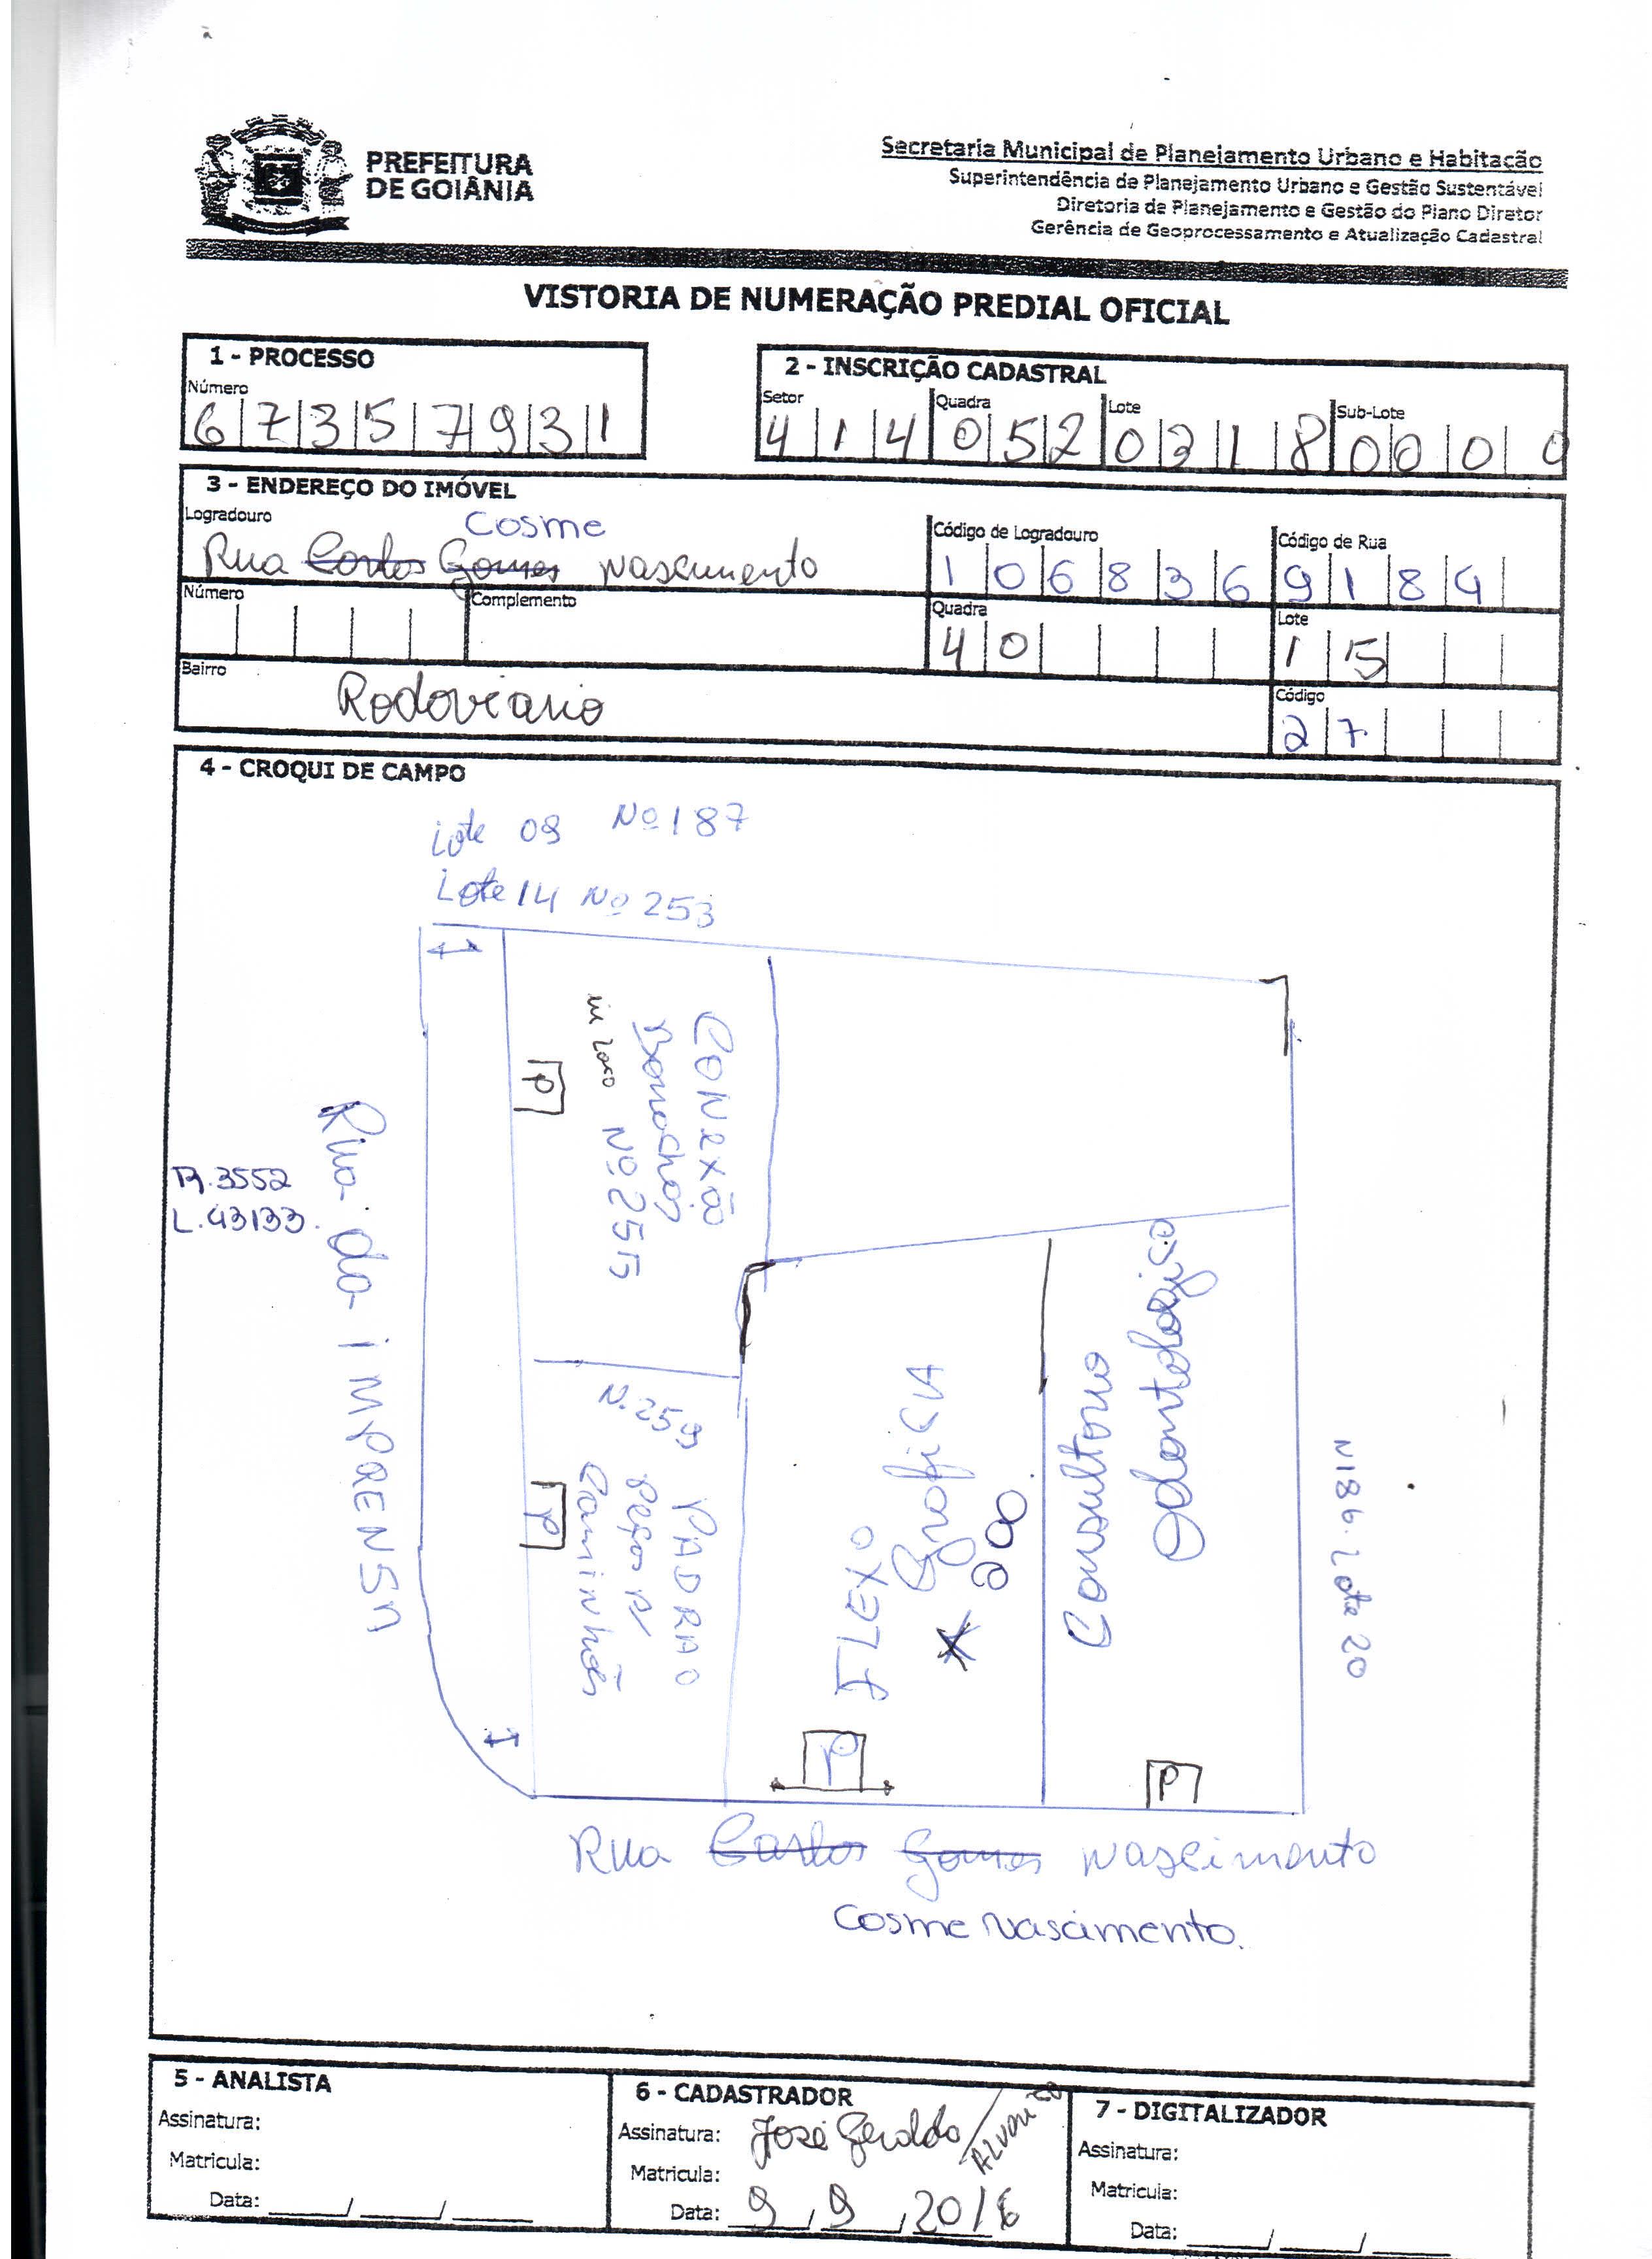 PREFEITURA
DE GOIÂNIA
Secretaria Municipal de Planejamento Urbano e Habitação
Superintendência de Planejamento Urbano e Gestão Sustentável
Diretoria de Planejamento e Gestão do Plano Diretor
Gerência de Geoprocessamento e Atualização Cadastral
VISTORIA DE NUMERAÇÃO PREDIAL OFICIAL
1 - PROCESSO
Número
6 7 3 5 7 9 3 1
2 - INSCRIÇÃO CADASTRAL
Setor Quadra Lote Sub-Lote
4 1 4 0 5 2 0 2 1 8 0 0 0 0
3 - ENDEREÇO DO IMÓVEL
Logradouro
Cosme
Rua Carlos Gomes Nascimento
Código de Logradouro
1 0 6 8 3 6
Código de Rua
9 1 8 4
Número
Complemento
Quadra
4 0
Lote
1 5
Bairro
Rodoviario
Código
2 7
4 - CROQUI DE CAMPO
Lote 09 Nº 187
Lote 14 Nº 253
CONEXÃO
Borrachas
in loco Nº 255
R. 3552
L. 43133.
Rua da IMPRENSA
P
N. 259
PADRAO
Peças p/
Caminhões
P
FLEXO
Grafica
200
P
Consultorio
Odontologico
P
N 186. Lote 20
Rua Carlos Gomes Nascimento
Cosme Nascimento.
5 - ANALISTA
Assinatura:
Matricula:
Data: ____/____/____
6 - CADASTRADOR
Assinatura: José Geraldo
Matricula:
Data: 9/9/2016
7 - DIGITALIZADOR
Assinatura:
Matricula:
Data: ____/____/____